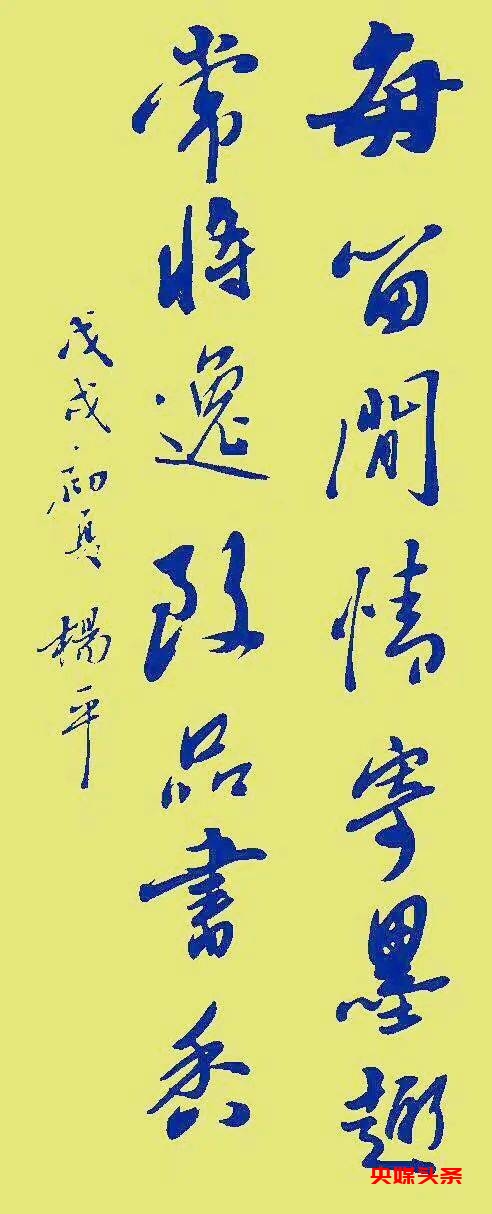 每留閒情寄墨趣
常將逸致品書香
戊戌初夏 楊平
央媒头条